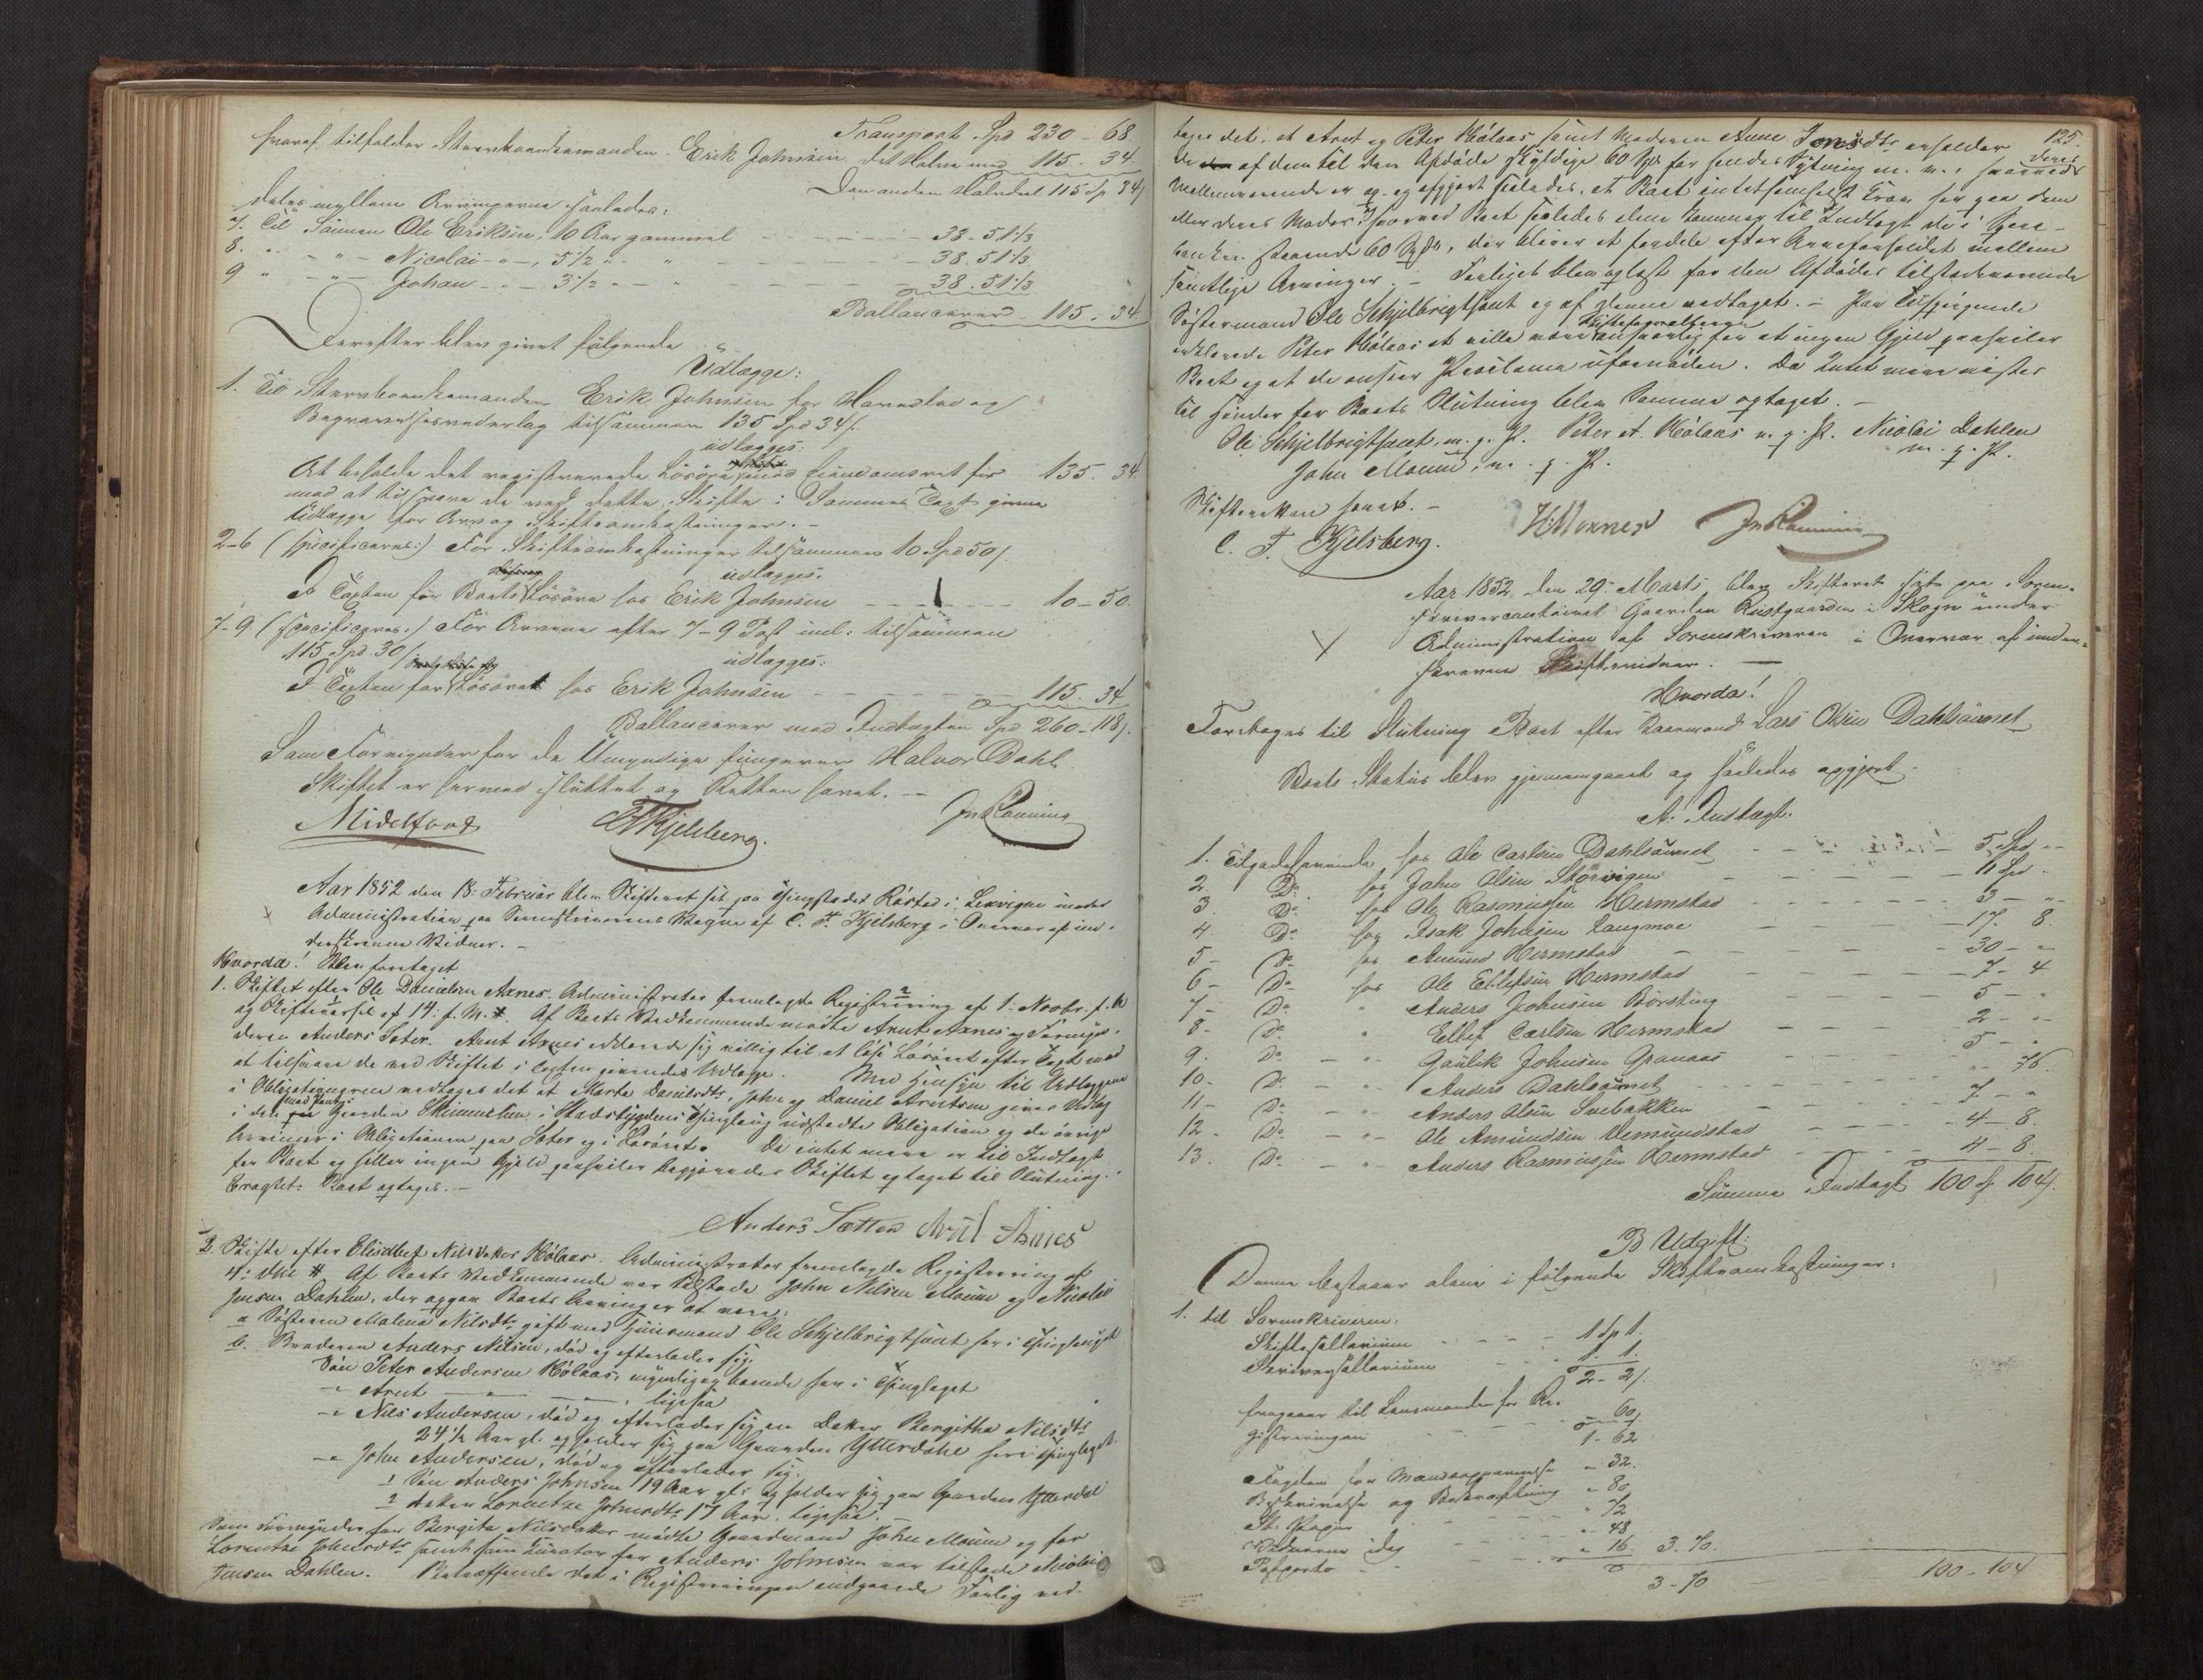 Transport Spd 230 - 68
hvoraf tilfalder Stervboenkemanden Erik Johnsen det Halve med 115 - 34.
Den anden Halvdeel 115 Sp 34 s
deles mellem Arvingerne saaledes:
7. Til Sønnen Ole Eriksen, 10 Aar gammel - - - 38 - 51 1/3
8. " - " - Nicolai - " -, 5 1/2 " - " - - - 38. 51 1/3
9 " - " - Johan - " - 3 1/2 " - " - - - 38. 51 1/3
Ballancerer 115 - 34.
Derefter blev givet følgende
Udlægge:
1. Til Stervboenkemanden Erik Johnsen for Havnelod og
Begravelsesvederlag tilsammen 135 Spd 34 s.
udlægges:
At beholde det registrerede Løsøre med Eiendomsret for 135. 34.
mod at tilsvare de ved dette Skifte i Sammes Taxt givne
Udlægge for Arv og Skifteomkostninger. -
2-6 (specificeres:) For Skifteomkostninger tilsammen 10 Spd 50 s
udlægges.
I Taxten for Boets Løsøre hos Erik Johnsen - - - 10 - 50.
7-9 (specificeres:) For Arvene efter 7-9 Post incl: tilsammen
115 Spd. 30 s
udlægges:
I Taxten for Løsøret hos Erik Johnsen - - - 115. 34
Ballancerer med Indtægten Spd 260 - 118 s.
Som Formynder for de Umyndige fungerer Halvor Dahl
Skiftet er hermed sluttet og Retten hævet. -
Midelfart CFKjelsberg. JnRanning
Aar 1852 den 18: Februar blev Skifteret sat paa Thingstedet Røsted i Lexvigen under
Administration paa Sorenskriverens Vegne af C. F. Kjelsberg i Overvær af un-
derskrevne Vidner. -
Hvorda! Blev foretaget
1. Skiftet efter Ole Danielsen Axnes. Administrator fremlagde Registrering af 1: Novbr. f. A
og Skiftevarsel af 14: f. M. #. Af Boets Vedkommende mødte Arnt Axnes og Formyn-
deren Anders Sæter. Arnt Axnes erklærede sig villig til at løse Løsøret efter Taxt mod
at tilsvare de ved Skiftet i Taxten givendes Udlægge. Med Hensyn til Udlæggene
i Obligationerne vedtages det at Marta Danielsdtr, John og Daniel Arntsen gives Udlæg
i den med Pant i Gaarden Skimmelien i Stadsbygdens Thinglaug udstedte Obligation og de øvrige
Arvinger i Obligationen paa Sæter og i Løsøret. Da intet mere er til Indtægt
for Boet og heller ingen Gjeld paahviler begjæredes Skiftet optaget til Slutning.
Eragtet: Boet optages. -
Anders Sætter Arnt Axnes
2. Skifte efter Elisabet Nilsdatter Hölaas. Administrator fremlagde Registrering af
4: dm # Af Boets Vedkommende var tilstede John Nilsen Moum og Nicolai
Jensen Dahlen, der opgav Boets Arvinger at være:
a Søsteren Malena Nilsdtr gift med Huusmand Ole Schjelbrigthaut her i Thinglauget
b. Broderen Anders Nilsen, død og efterlader sig:
Søn Peter Andersen Hölaas, myndig og boende her i Thinglaget
" Arnt - " - , ligesaa
" Nils Andersen, død og efterlader sig en Datter Bergitha Nilsdtr
24 1/2 Aar gl. opholder sig paa Gaarden Ytterdahl her i Thinglaget.
" John Andersen, død og efterlader sig:
1 Søn Anders Johnsen 19 Aar gl: opholder sig paa Gaarden Ytterdal
2 Datter Lorentze Johnsdtr 17 Aar, ligesaa.
Som Formynder for Bergita Nilsdatter mødte Gaardmand John Moum og for
Lorentze Johnsdtr samt som Curator for Anders Johnsen var tilstede Nicolai
Jensen Dahlen. Betræffende det i Registreringen indgaaede Forlig ved-
125.
tages det, at Arnt og Peter Hölaas samt Moderen Anne Jonsdtr erholder
de af dem til den Afdøde skyldige 60 Spd for hendes Sytning m. v., hvorved deres
Mellemværende er op- og afgjort saaledes, at Boet intetsomhelst Krav har paa dem
eller deres Moder, hvorved Boet saaledes alene kommer til Indtægt de i Spare-
banken staaende 60 Spdlr, der bliver at fordele efter Arveforholdet mellem
samtlige Arvinger. - Forliget blev oplæst for den Afdødes tilstedeværende
Søstermand Ole Schjelbrigthaut og af denne vedtaget. - Paa Tilspørgende
erklærede Peter Hölaas at ville være Skifteforvalteren ansvarlig for at ingen Gjeld paahviler
Boet og at de anser Proclama ufornøden. Da Intet mere vistes
til Hinder for Boets Slutning blev Samme optaget. -
Ole Schjelbrigthaut, m. p. P. Peter A. Hölaas m. p. P. Nicolai Dahlen
m. p. P.
John Moum, m. p. P.
Skifteretten hævet. -
C. F. Kjelsberg. HMoxnes JnRanning
Aar 1852, den 29: Marts blev Skifteret sat paa Soren-
skrivercontoiret Gaarden Rustgaarden i Skogn under
Administration af Sorenskriveren i Overvær af under-
skrevne Skiftevidner. -
Hvorda!
Foretoges til Slutning Boet efter Baarmand Lars Olsen Dahlsaunet
Boets Status blev gjennemgaaet og saaledes opgjort
A. Indtægt.
1. Tilgodehavende hos Ole Carlsen Dahlsaunet - - - 5 Spd "
2. Do hos John Olsen Störvigen - - - 11 Spd "
3. Do hos Ole Rasmussen Hermstad - - - 3 - "
4. Do hos Isak Johnsen Langmoe - - - 17. 8.
5 - Do hos Amund Hermstad - - - 30 - "
6 - Do hos Ole Ellefsen Hermstad - - - 7 - 4
7 - Do " Anders Johnsen Börsting - - - 5 - "
8 - Do " Ellef Carlsen Hermstad - - - 2 - "
9. Do - " Gaulik Johnsen Granaas - - - 5 - "
10 - Do - " Anders Dahlsaunet - - - " 76.
11 - Do - " Anders Olsen Snebakken - - - 7 - "
12 - Do - " Ole Amundsen Vemundstad - - - 4 - 8.
13. Do - " Anders Rasmussen Hermstad - - - 4 - 8.
Summa Indtægt 100 Sp 104 s.
B Udgift.
Denne bestaaer alene i følgende Skifteomkostninger:
1. til Sorenskriveren:
Skiftesallarium - - - 1 Sp 1.
Skriversallarium - - - 1. 1.
2 - 2 s.
fragaaer til Lensmanden for Re-
gistreringen - - - " 60 s.
1 - 62
Taxten for Mandsopnævnelse " 32.
Beskrivelse og Bekræftning " 80
St. Papir " 72
Vidnerne idag " 48
Postporto " 16. 3. 70.
3 - 70 100 - 104